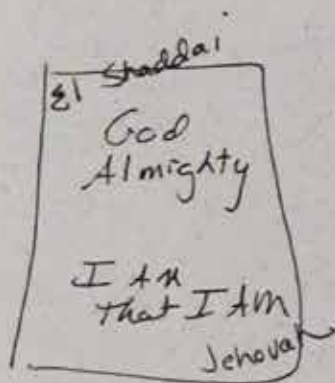 El Shaddai
God
Almighty
I AM
That I AM
Jehovah